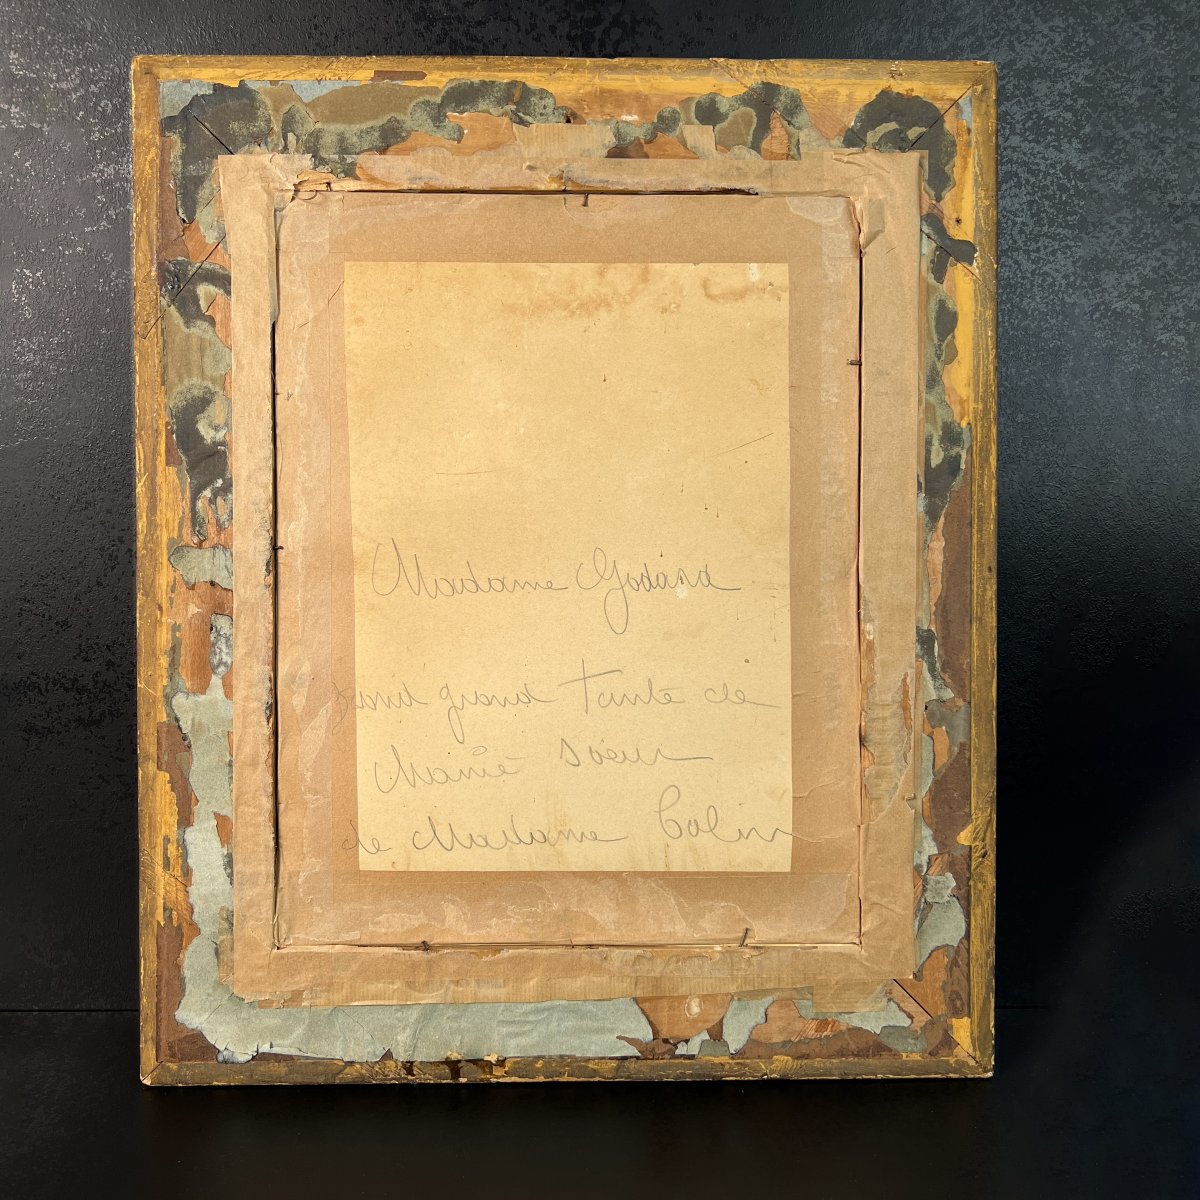 Madame Godard
grand tante de
Mamie soeur
de Madame Colin